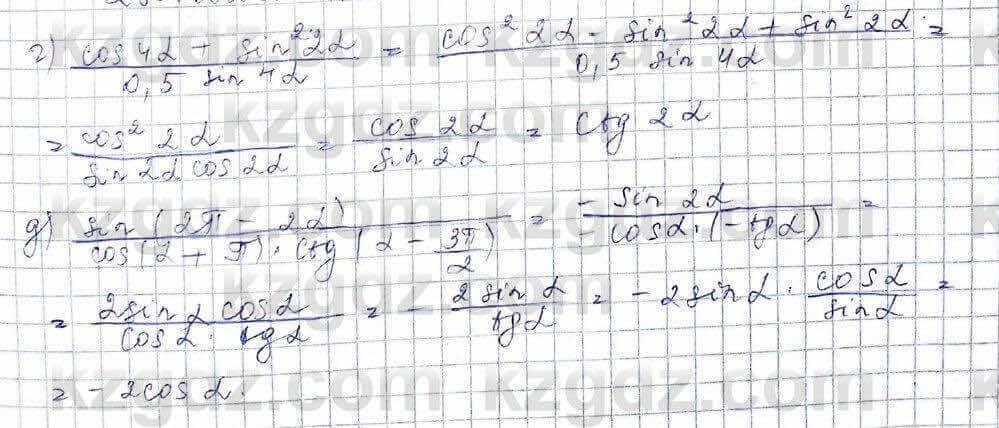 г) (cos 4α + sin² 2α)/(0,5 sin 4α) = (cos² 2α - sin² 2α + sin² 2α)/(0,5 sin 4α) =
= (cos² 2α)/(sin 2α cos 2α) = (cos 2α)/(sin 2α) = ctg 2α
д) (sin(2π - 2α))/(cos(α + π) · ctg(α - 3π/2)) = (- sin 2α)/(- cos α · (- tg α)) =
= (2 sin α cos α)/(cos α · tg α) = - (2 sin α)/(tg α) = - 2 sin α · (cos α)/(sin α) =
= - 2 cos α.
kzgdz.com